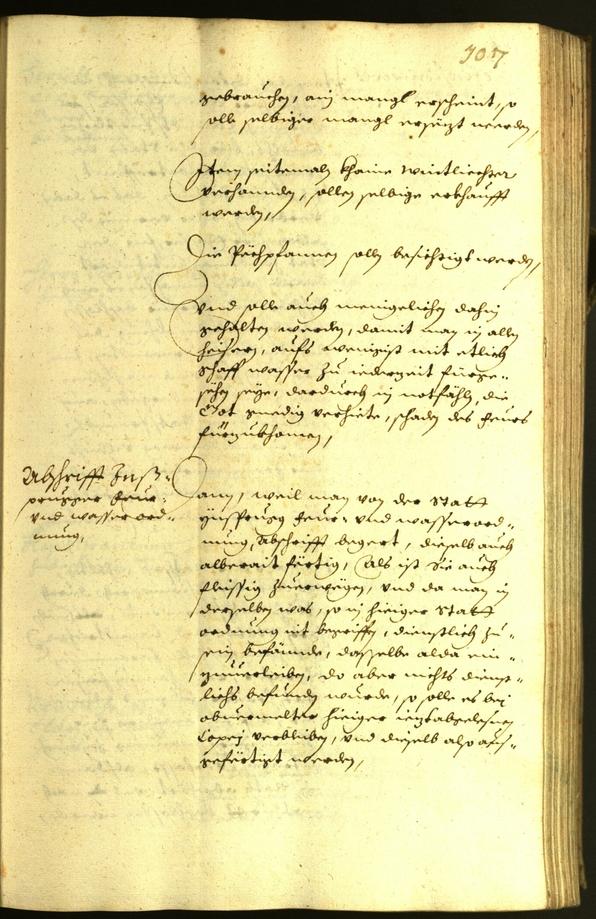 307
gebrauchen, ain mangl erscheint, so
solle selbiger mangl ersezt werden,
Item seitemaln khaine Windtliechter
verhannden, sollen selbige erkhaufft
werden,
Die Pächpfannen solln besichtigt werden,
Vnd solle auch menigelichen dahin
gehalten werden, damit man in allen
heisern, aufs wenigist mit etlich
schaff wasser zu iederzeit fürge-
sehen seye, dardurch in notfähln, die
Got gnedig verhiete, schaden des feurs
fürzukhomen,
Abschrifft Inß-
prugger feur-
vnd wasser ord-
nung,
dann, weil man von der Statt
Ynsprugg feur- vnd wasser ord-
nung, Abschrifft begert, dieselb auch
alberait fertig, Als ist Sie auch
fleissig zuerwegen, vnd da man in
derselben was, so in hieiger Statt
ordnung nit begriffen, dienstlich zu
sein befünde, dasselbe alda ein-
zuuerleiben, do aber nichts dienst-
lichs befunden wurde, so solle es bej
obuermelter hieiger iezt abgelesnen
Copej verbleiben, vnd dieselb also auß-
gefertigt werden,